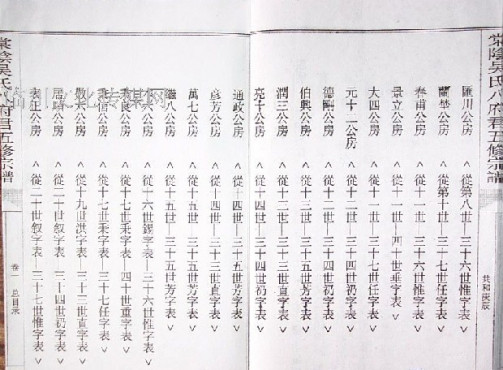 棠陰吳氏八府君五修宗譜
共和庚辰
匯川公房 ︿從第八世—三十六世惟字表﹀
蘭埜公房 ︿從第十世—三十七世任字表﹀
春甫公房 ︿從十一世—三十六世惟字表﹀
景立公房 ︿從十一世—四十世垂字表﹀
大四公房 ︿從十一世—三十四世礽字表﹀
元十二公房 ︿從十二世—三十四世礽字表﹀
德剛公房 ︿從十二世—三十四世礽字表﹀
伯興公房 ︿從十二世—三十五世芳字表﹀
潤三公房 ︿從十三世—三十四世礽字表﹀
亮十公房 ︿從十四世—三十四世礽字表﹀
通政公房 ︿從十四世—三十五世芳字表﹀
彥芳公房 ︿從十四世—三十五世芳字表﹀
萬七公房 ︿從十五世—三十五世芳字表﹀
繼八公房 ︿從十五世—三十五世芳字表﹀
六公房 ︿從十六世錫字表—三十六世惟字表﹀
良公房 ︿從十七世秉字表—四十世重字表﹀
信公房 ︿從十七世秉字表—三十七任字表﹀
公房 ︿從十九世洪字表—四十世垂字表﹀
公房 ︿從二十世叙字表—三十四世礽字表﹀
表江公房 ︿從二十世叙字表—三十七世惟字表﹀
棠陰吳氏八府君五修宗譜
卷一 总目录